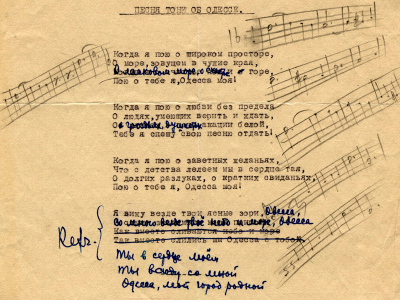 ПЕСНЯ ТОНИ ОБ ОДЕССЕ.
Когда я пою о широком просторе,
О море, зовущем в чужие края,
О ласковом море, о счастье и горе,
Пою о тебе я, Одесса моя!
Когда я пою о любви без предела
О людях, умеющих верить и ждать,
акации белой,
Тебе я спешу свою песню отдать!
Когда я пою о заветных желаньях,
Что с детства лелеем мы в сердце тая,
О долгих разлуках, о кратких свиданьях,
Пою о тебе я, Одесса моя!
Я вижу везде твои ясные зори, Одесса,
Со мною везде твоё небо и море, Одесса
Как вместе сливаются небо и море
Так вместе слились мы Одесса с тобой.
Refr.
Ты в сердце моём
Ты всюду со мной
Одесса, мой город родной